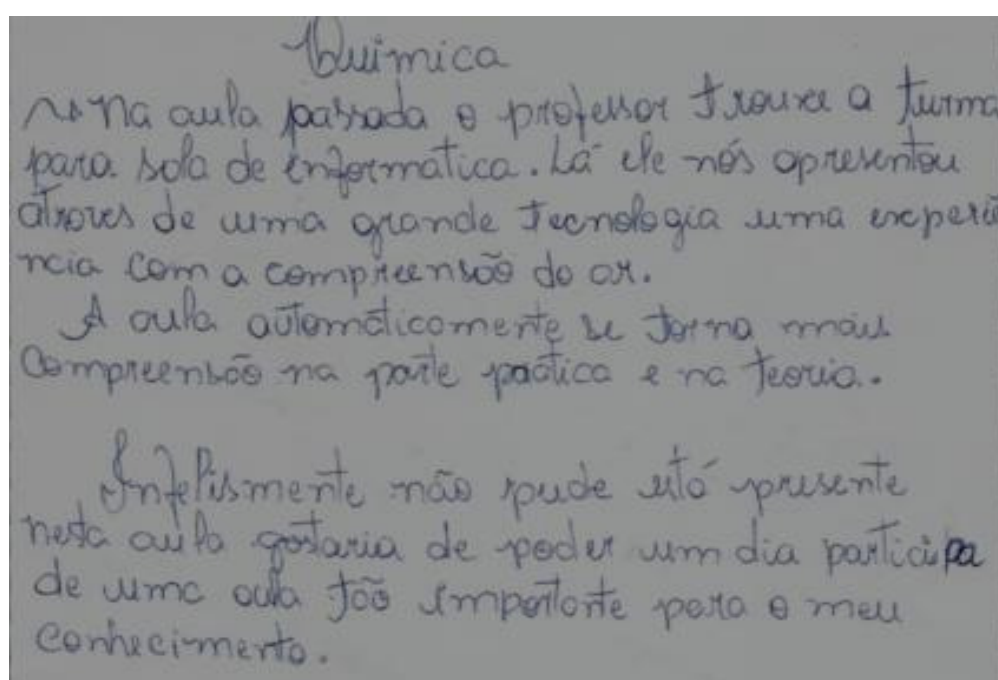 Química
Na aula passada o professor trouxe a turma
para sala de informática. Lá ele nós apresentou
atraves de uma grande tecnologia uma experiê
ncia com a compreensão do ar.
A aula automáticamente se torna mais
Compreensão na parte páctica e na teoria.
Infelismente não pude está presente
nesta aula gostaria de poder um dia participa
de uma aula tão importante para o meu
conhecimento.